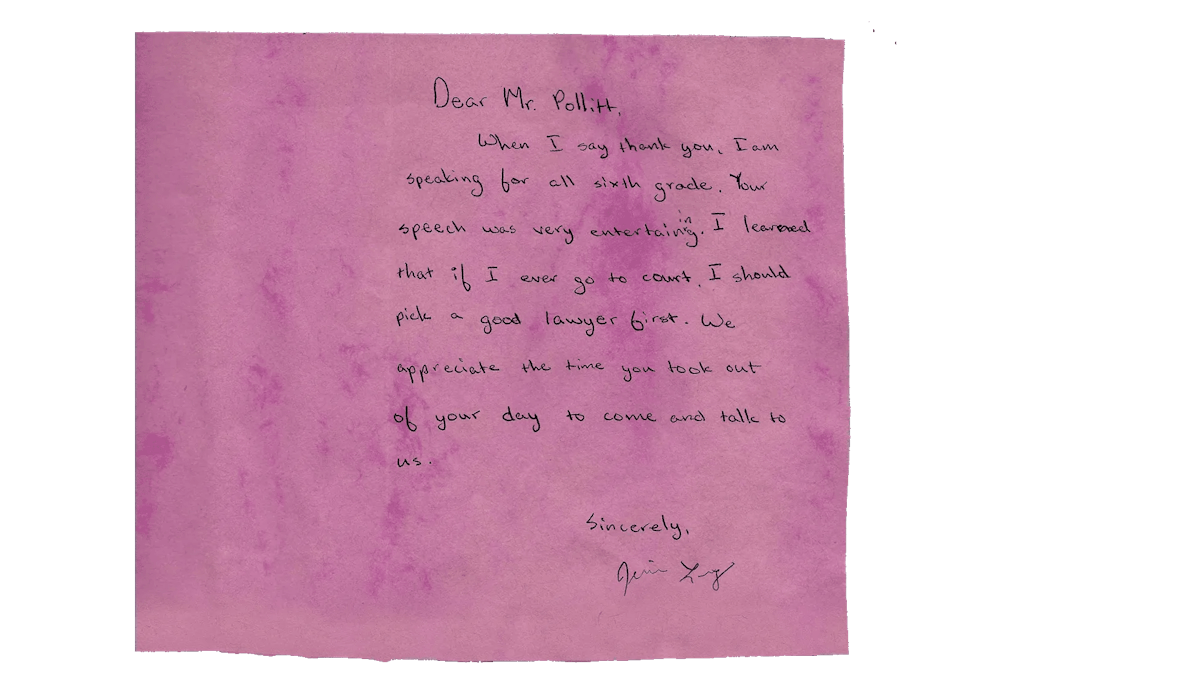 Dear Mr. Pollitt,
When I say thank you, I am
speaking for all sixth grade. Your
speech was very entertaining. I learned
that if I ever go to court, I should
pick a good lawyer first. We
appreciate the time you took out
of your day to come and talk to
us.
Sincerely,